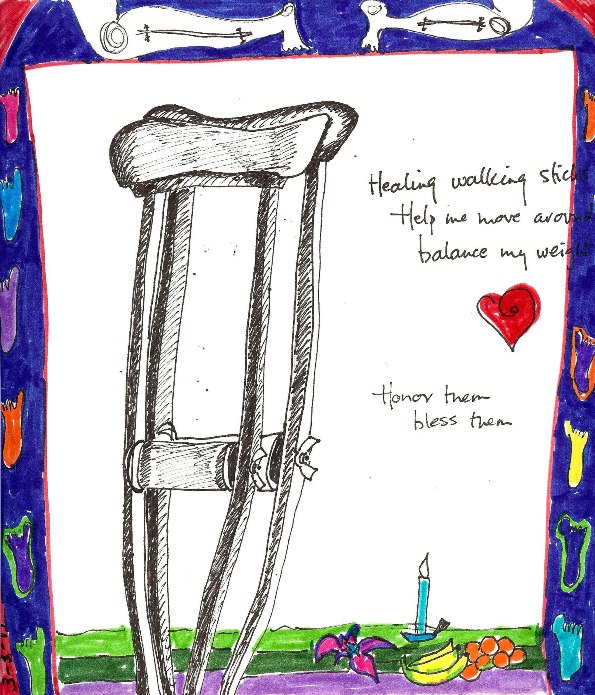 Healing walking sticks
Help me move around
balance my weight
Honor them
bless them